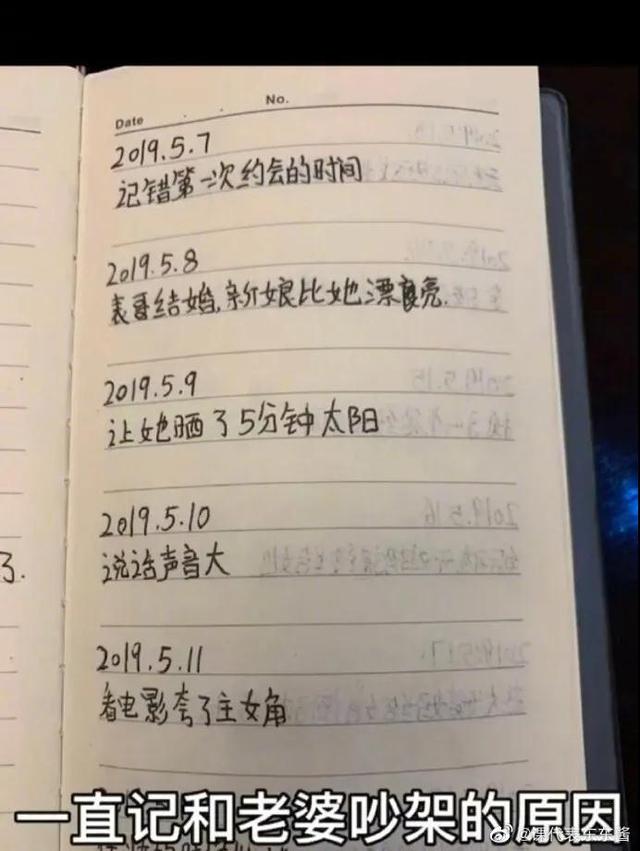 Date No.
2019.5.7
记错第一次约会的时间
2019.5.8
表哥结婚,新娘比她漂亮.
2019.5.9
让她晒了5分钟太阳
2019.5.10
说话声音大
了.
2019.5.11
看电影夸了主女角
一直记和老婆吵架的原因
@课代表东东酱